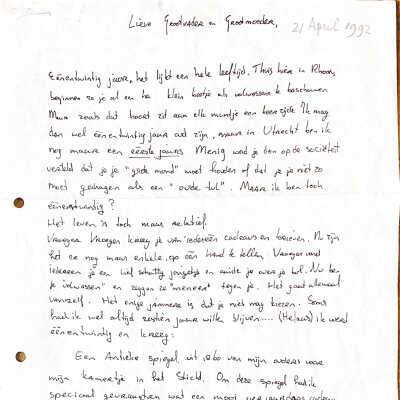 Lieve Grootvader en Grootmoeder,
21 April 1992
Eénentwintig jaar, het lijkt een hele leeftijd. Thuis hier in Rhoon,
beginnen ze je al een klein beetje als volwassene te beschouwen
Maar zoals dat hoort zit aan elk muntje een keerzijde. Ik mag
dan wel éénentwintig jaar oud zijn, maar in Utrecht ben ik
nog maar een eerste jaars. Menig word je ben op de sociëteit
verteld dat je je "grote mond" moet houden of dat je je niet zo
moet gedragen als een "oude lul". Maar ik ben toch
éénentwintig?
Het leven is toch maar relatief.
Vroeger kreeg je van iedereen cadeaus en brieven. Nu zijn
het er nog maar enkele, op één hand te tellen. Vroeger vond
iedereen je een lief schattig jongetje en aaide je over je bol. Nu ben
je "volwassen" en zeggen ze "meneer" tegen je. Het gaat allemaal
vanzelf. Het enige jammere is dat je niet mag kiezen. Soms
had ik wel altijd zestien jaar willen blijven.... (Helaas) ik werd
éénentwintig en kreeg:
Een Antieke spiegel uit 1860 van mijn ouders voor
mijn kamertje in het Sticht. Om deze spiegel had ik
speciaal gevraagd wat een mooi verjaardags cadeau